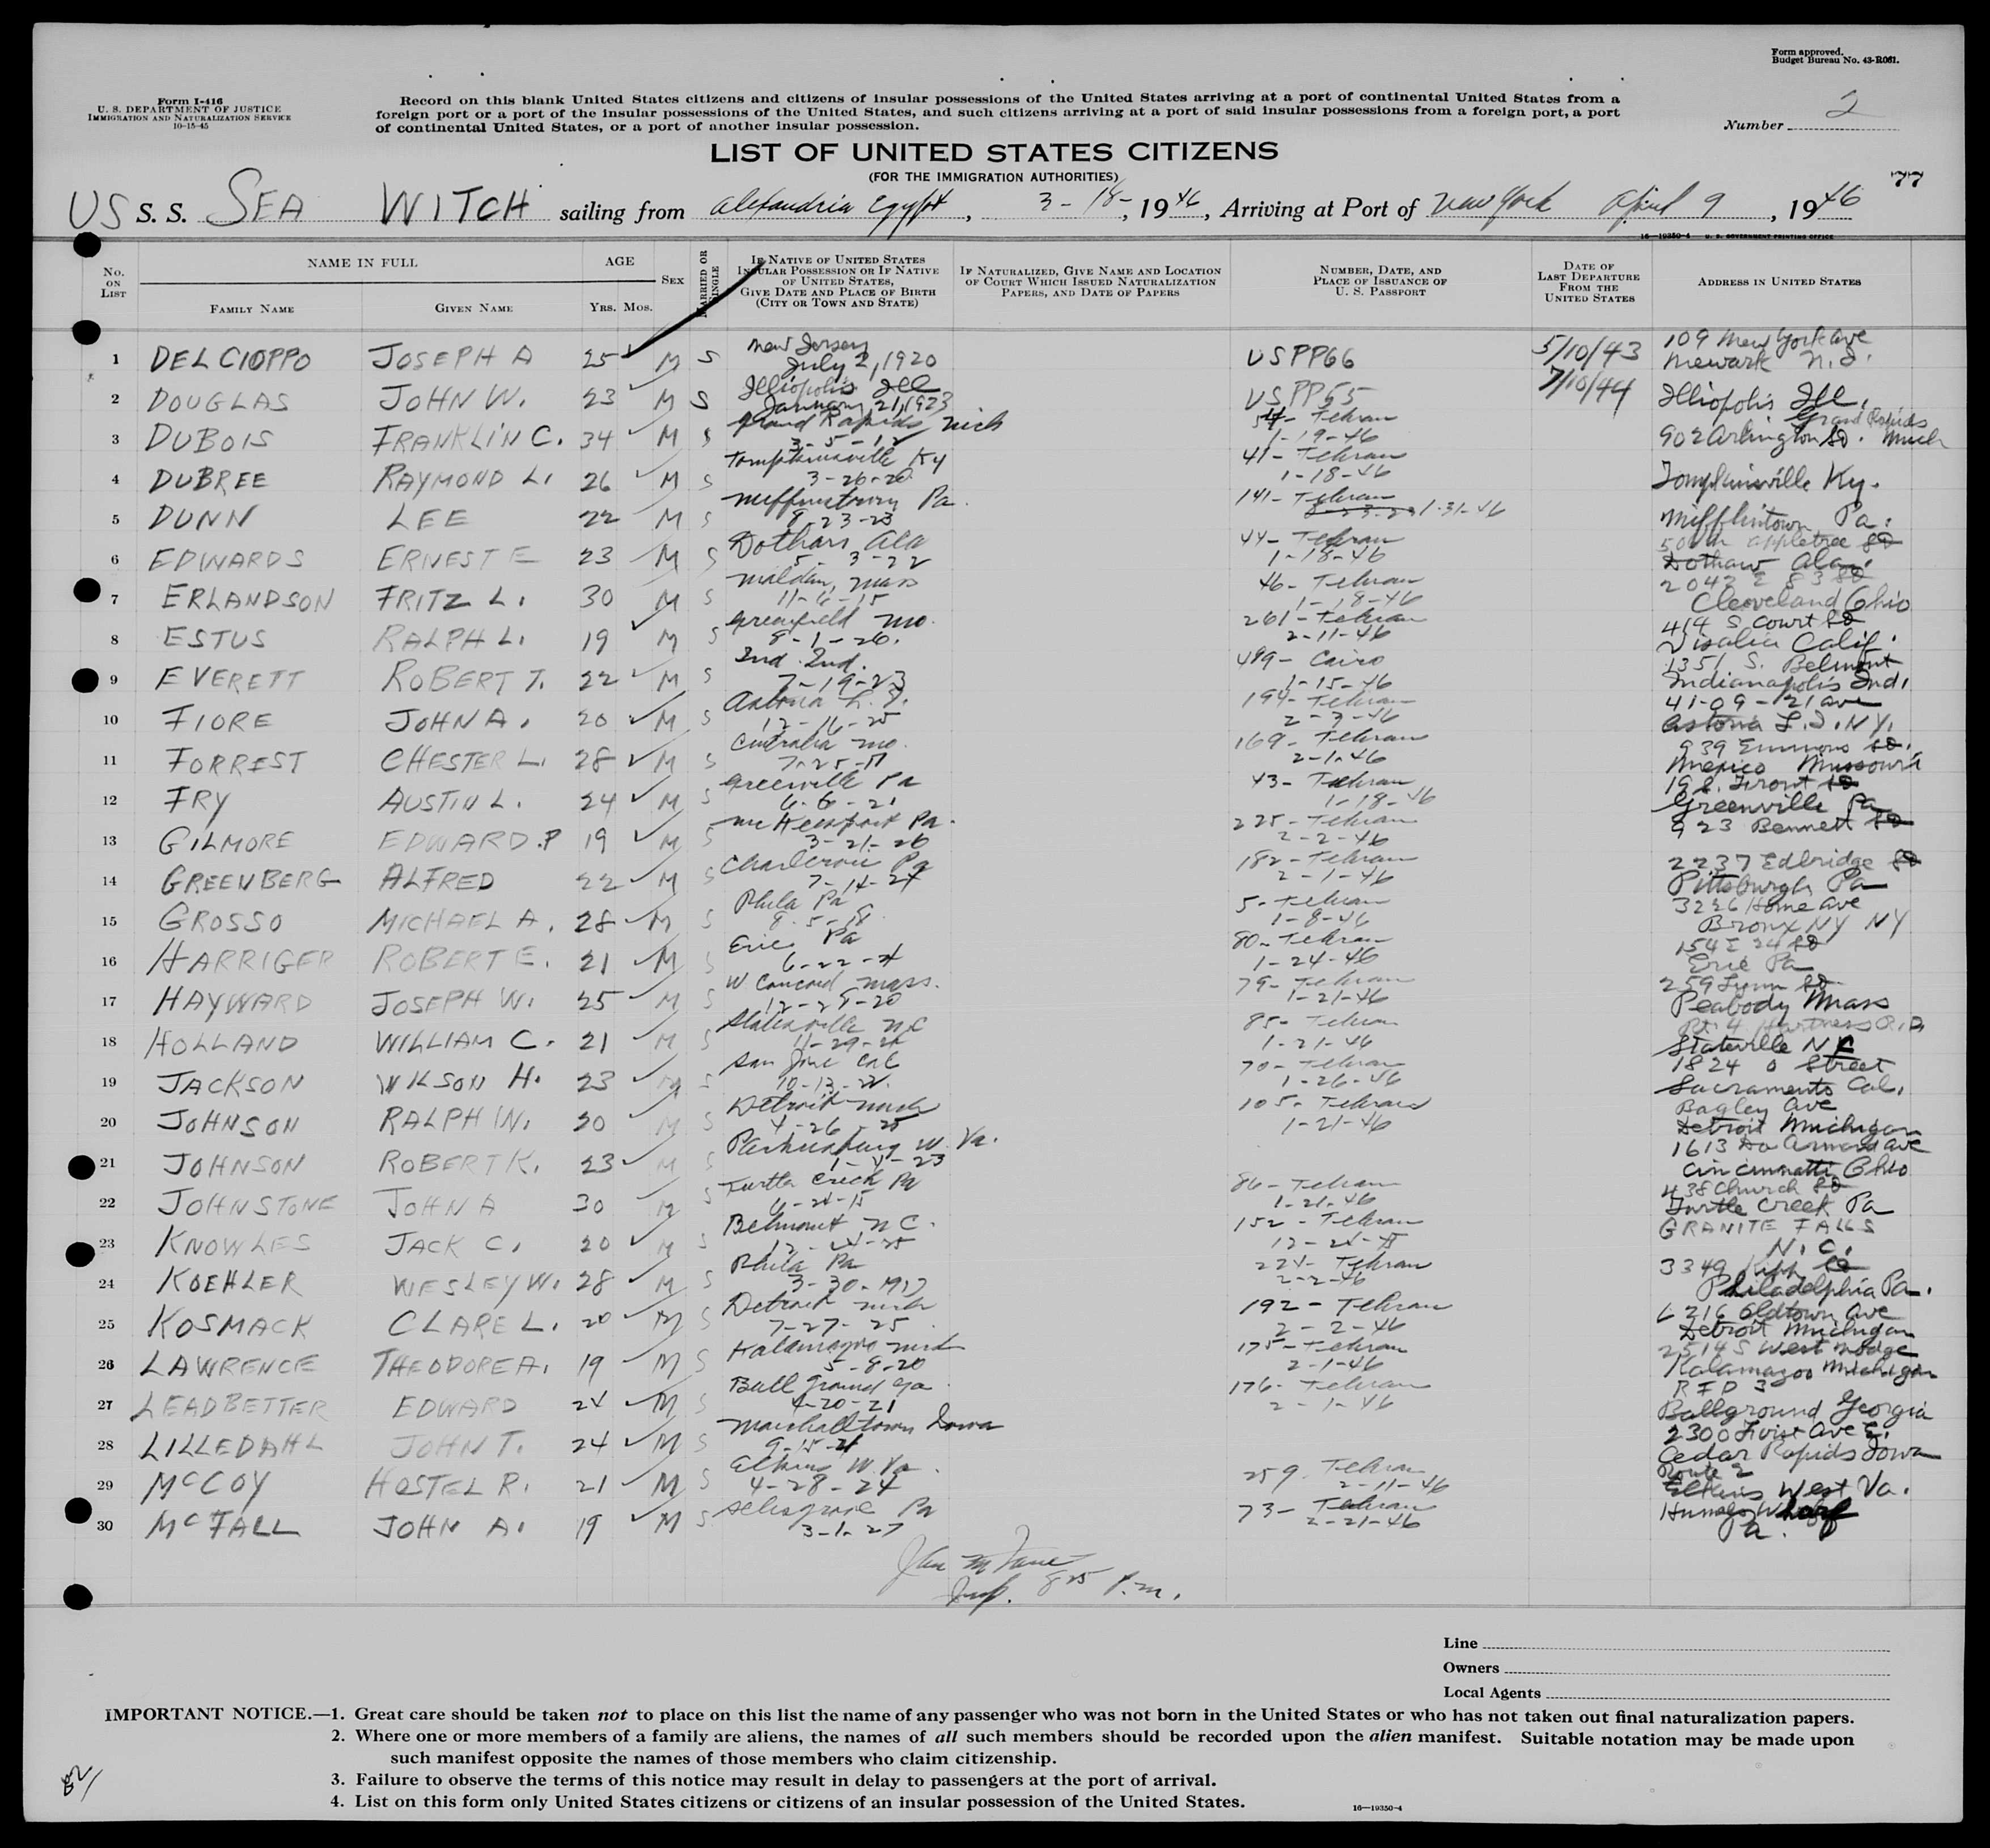 Form approved.
Budget Bureau No. 43-R061.
Form I-416
U. S. DEPARTMENT OF JUSTICE
IMMIGRATION AND NATURALIZATION SERVICE
10-15-45
Record on this blank United States citizens and citizens of insular possessions of the United States arriving at a port of continental United States from a
foreign port or a port of the insular possessions of the United States, and such citizens arriving at a port of said insular possessions from a foreign port, a port
of continental United States, or a port of another insular possession.
Number 2
LIST OF UNITED STATES CITIZENS
(FOR THE IMMIGRATION AUTHORITIES)
77
US S. S. SEA WITCH sailing from Alexandria Egypt, 3-18-, 1946, Arriving at Port of New York April 9, 1946
16-19350-4 U. S. GOVERNMENT PRINTING OFFICE
No. ON LIST
NAME IN FULL
FAMILY NAME
GIVEN NAME
AGE
YRS. MOS.
SEX
MARRIED OR SINGLE
IF NATIVE OF UNITED STATES INSULAR POSSESSION OR IF NATIVE OF UNITED STATES, GIVE DATE AND PLACE OF BIRTH (CITY OR TOWN AND STATE)
IF NATURALIZED, GIVE NAME AND LOCATION OF COURT WHICH ISSUED NATURALIZATION PAPERS, AND DATE OF PAPERS
NUMBER, DATE, AND PLACE OF ISSUANCE OF U. S. PASSPORT
DATE OF LAST DEPARTURE FROM THE UNITED STATES
ADDRESS IN UNITED STATES
1 DEL CIOPPO JOSEPH A 25 M S New Jersey July 2, 1920 USPP66 5/10/43 109 New York Ave Newark N.J.
2 DOUGLAS JOHN W. 23 M S Illiopolis Ill January 21, 1923 USPP55 7/10/44 Illiopolis Ill.
3 DUBOIS FRANKLIN C. 34 M S Grand Rapids Mich 3-5-12 54- Tehran 1-19-46 902 Arlington St. Grand Rapids Mich
4 DUBREE RAYMOND L. 26 M S Tompkinsville Ky 3-26-20 41- Tehran 1-18-46 Tompkinsville Ky.
5 DUNN LEE 22 M S Mifflintown Pa. 8-23-23 141- Tehran 1-31-46 Mifflintown Pa.
6 EDWARDS ERNEST E 23 M S Dothan Ala 5-3-22 44- Tehran 1-18-46 appletree St Dothan Ala.
7 ERLANDSON FRITZ L. 30 M S Malden, Mass 46- Tehran 1-18-46 2042 E 83 St Cleveland Ohio
8 ESTUS RALPH L. 19 M S Greenfield Mo. 8-1-26. 261- Tehran 2-11-46 414 S. Court St Visalia Calif.
9 EVERETT ROBERT T. 22 M S Ind. Ind. 7-19-23 499- Cairo 1-15-46 1351 S. Belmont Indianapolis Ind.
10 FIORE JOHN A. 20 M S Astoria L.I. 12-16-25 194- Tehran 41-09-21 ave Astoria L.I. N.Y.
11 FORREST CHESTER L. 28 M S Centralia Mo. 7-25-17 169- Tehran 2-1-46 939 Emmons St. Mexico Missouri
12 FRY AUSTIN L. 24 M S Greenville Pa 6-6-21 43- Tehran 1-18-46 Front St Greenville Pa
13 GILMORE EDWARD P 19 M S McKeesport Pa. 3-21-26 225- Tehran 2-2-46 923 Bennett St
14 GREENBERG ALFRED 22 M S Charleroi Pa 182- Tehran 2-1-46 2237 Edbridge St Pittsburgh Pa
15 GROSSO MICHAEL A. 28 M S Phila Pa 5- Tehran 1-8-46 3226 Home Ave Bronx NY NY
16 HARRIGER ROBERT E. 21 M S Erie Pa 80- Tehran 1-24-46 154 E 24 St Erie Pa
17 HAYWARD JOSEPH W. 25 M S W. Concord Mass. 79- Tehran 1-21-46 259 Lynn St Peabody Mass
18 HOLLAND WILLIAM C. 21 M S Statesville NC 85- Tehran 1-21-46 Rt. 4 Stateville NC
19 JACKSON WILSON H. 23 M S San Jose Cal 70- Tehran 1-26-46 1824 O Street Sacramento Cal.
20 JOHNSON RALPH W. 20 M S Detroit Mich 4-26-25 105- Tehran 1-21-46 Bagley Ave Detroit Michigan
21 JOHNSON ROBERT K. 23 M S Parkersburg W. Va. 1613 Ave Cincinnatti Ohio
22 JOHNSTONE JOHN A 30 M S Turtle Creek Pa 6-24-15 86- Tehran 1-21-46 438 Church St Turtle Creek Pa
23 KNOWLES JACK C. 20 M S Belmont N C. 152- Tehran GRANITE FALLS N.C.
24 KOEHLER WESLEY W. 28 M S Phila Pa 3-30-1917 224- Tehran 2-2-46 3349 St Philadelphia Pa.
25 KOSMACK CLARE L. 20 M S Detroit Mich 7-27-25 192- Tehran 2-2-46 6216 Oldtown Ave Detroit Michigan
26 LAWRENCE THEODORE A. 19 M S Kalamazoo Mich 5-8-20 175- Tehran 2-1-46 2514 S Westnedge Kalamazoo Michigan
27 LEADBETTER EDWARD 24 M S Ball Ground Ga 4-20-21 176- Tehran 2-1-46 RFD 3 Ballground Georgia
28 LILLEDAHL JOHN T. 24 M S Marshalltown Iowa 9-15-21 2300 First Ave E. Cedar Rapids Iowa
29 McCOY HOSTEL R. 21 M S Elkins W. Va. 4-28-24 259. Tehran 2-11-46 Route 2 Elkins West Va.
30 McFALL JOHN A. 19 M S Selinsgrove Pa 3-1-27 73- Tehran 2-21-46 Hummels Wharf Pa.
Insp. 8 25 P.m.
Line
Owners
Local Agents
IMPORTANT NOTICE.—1. Great care should be taken not to place on this list the name of any passenger who was not born in the United States or who has not taken out final naturalization papers.
2. Where one or more members of a family are aliens, the names of all such members should be recorded upon the alien manifest. Suitable notation may be made upon
such manifest opposite the names of those members who claim citizenship.
3. Failure to observe the terms of this notice may result in delay to passengers at the port of arrival.
4. List on this form only United States citizens or citizens of an insular possession of the United States.
16-19350-4